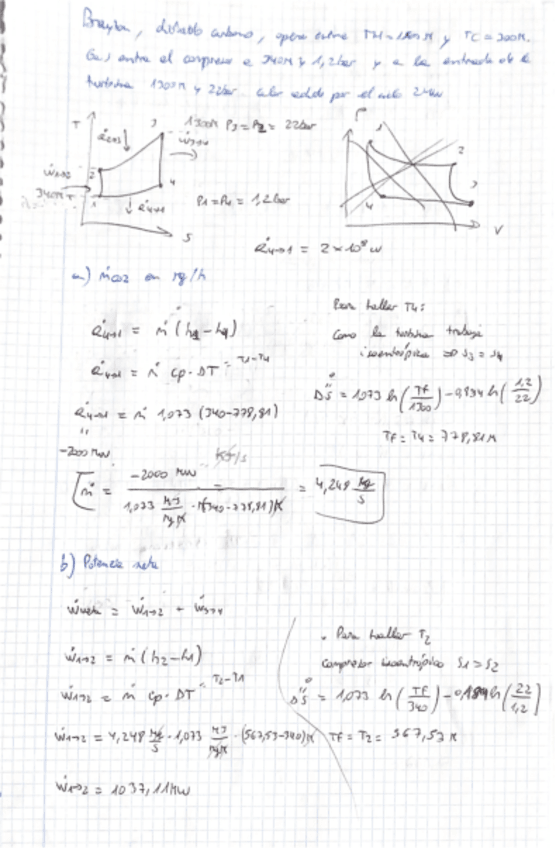 Brayton, dióxido carbono, opera entre TH=1300K y TC=300K.
Gas entra al compresor a 340K y 1,2bar y a la entrada de la
turbina 1300K y 22bar. Calor cedido por el ciclo 2MW
T
3
1300K P3=P2=22bar
2
340K
1
4
P1=P4=1,2bar
Q̇4→1
S
P
1
2
3
4
V
Q̇4→1 = 2×10⁶ W
a) ṁCO2 en kg/h
Q̇4→1 = ṁ (h1-h4)
Q̇4→1 = ṁ cp·DT T1-T4
Q̇4→1 = ṁ 1,073 (340-778,81)
"
-2000 kW
KJ/s
ṁ = -2000 kW / 1,073 KJ/kgK · (340-778,81)K = 4,248 kg/s
Para hallar T4:
Como la turbina trabaja
isoentrópica => S3=S4
0
DS = 1,073 ln(TF/1300) - 0,189 ln(1,2/22)
TF=T4=778,81K
b) Potencia neta
Ẇneta = Ẇ1→2 + Ẇ3→4
Ẇ1→2 = ṁ(h2-h1)
Ẇ1→2 = ṁ cp·DT T2-T1
Ẇ1→2 = 4,248 kg/s · 1,073 KJ/kgK · (567,53-340)K
Ẇ1→2 = 1037,11kW
• Para hallar T2
compresor isoentrópico S1=S2
0
DS = 1,073 ln(TF/340) - 0,189 ln(22/1,2)
TF=T2=567,53 K